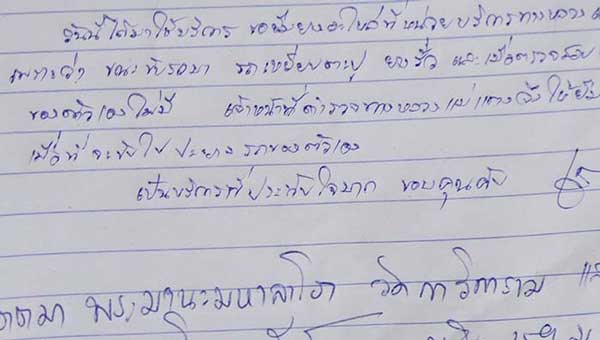 วันนี้ได้มาใช้บริการ ขอยืมยางอะไหล่ที่หน่วยบริการทางหลวง
เพราะว่า ขณะขับรถมา รถเหยียบตะปู ยางรั่ว และเมื่อตรวจสอบ
ของตัวเองไม่มี เจ้าหน้าที่ตำรวจทางหลวงแม่แตงจึงให้ยืม
เพื่อที่จะขับไปปะยางรถของตัวเอง
เป็นบริการที่ประทับใจมาก ขอบคุณครับ
อาตมา พระมานะมหาลาโภ วัดกาวิการาม